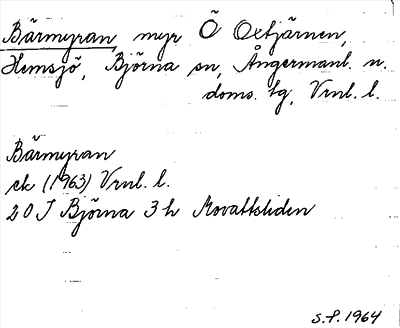 Bärmyran, myr Ö Oxtjärnen,
Hemsjö, Björna sn, Ångermanl. n.
doms. tg, Vrnl. l.
Bärmyran
ek (1963) Vrnl. l.
20 I Björna 3 h Movattsliden
S.F. 1964